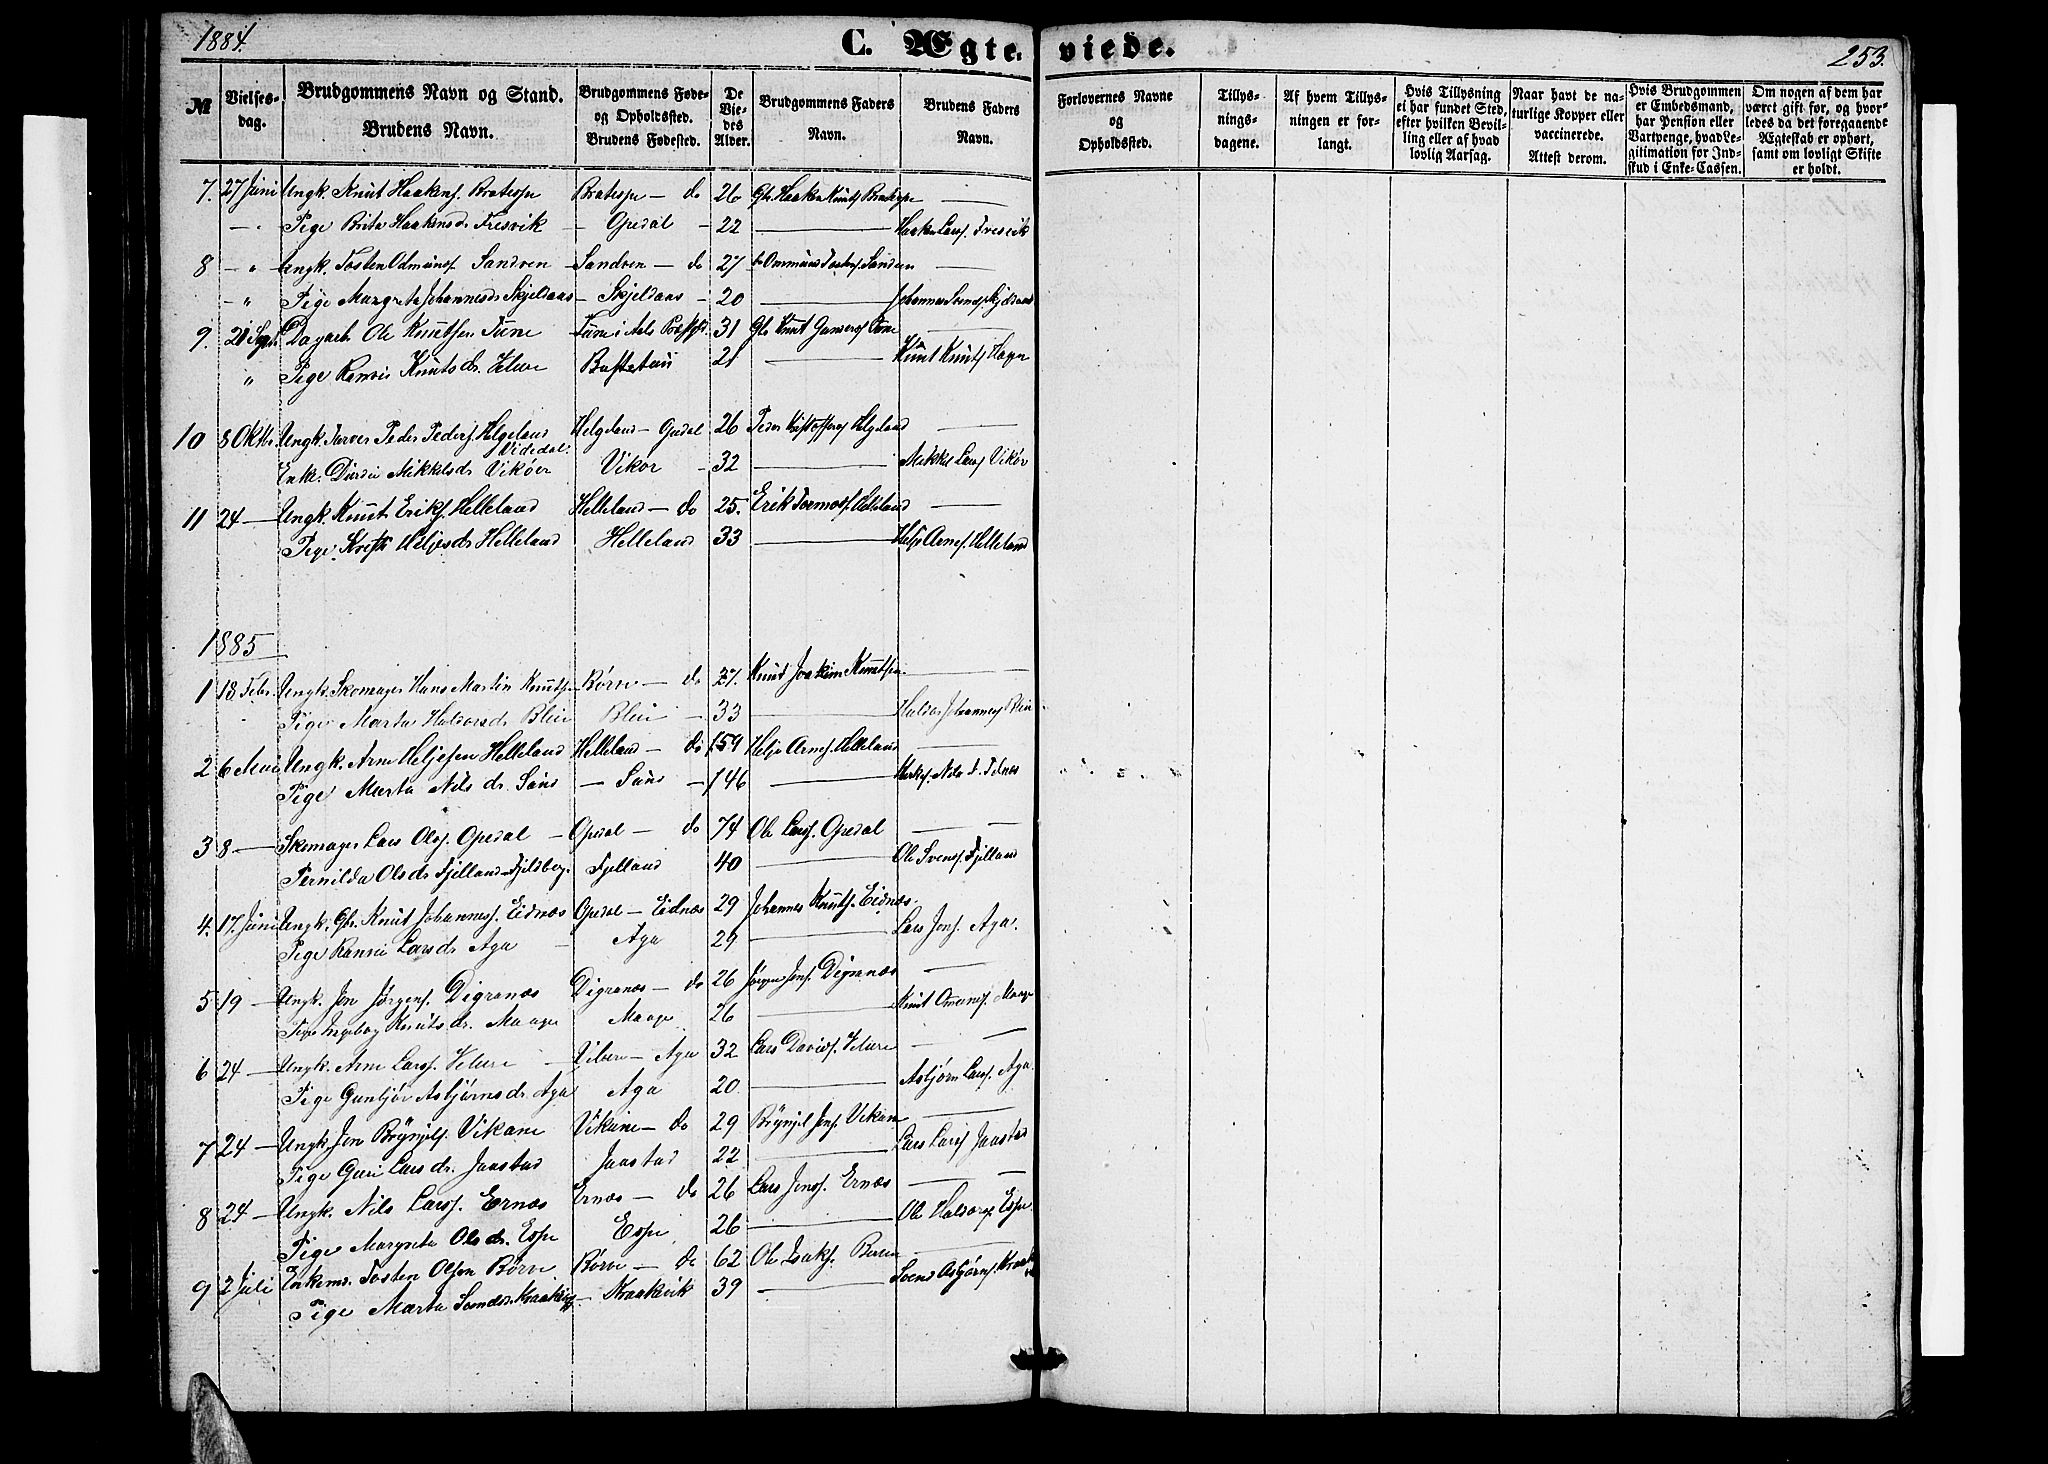 1884.
C. Ægteviede.
253.
№
Vielsesdag.
Brudgommens Navn og Stand.
Brudens Navn.
Brudgommens Føde- og Opholdssted.
Brudens Fødested.
De Viedes Alder.
Brudgommens Faders Navn.
Brudens Faders Navn.
Forlovernes Navne og Opholdssted.
Tillysningsdagene.
Af hvem Tillysningen er forlangt.
Hvis Tillysning ei har fundet Sted, efter hvilken Bevilling eller af hvad lovlig Aarsag.
Naar havt de naturlige Kopper eller vaccinerede. Attest derom.
Hvis Brudgommen er Embedsmand, har Pension eller Vartpenge, hvad Legitimation for Indskud i Enke-Cassen.
Om nogen af dem har været gift før, og hvorledes da det foregaaende Ægteskab er ophørt, samt om lovligt Skifte er holdt.
7. 27 Juni Ungk. Knut Haakens. Bratespe Bratespe — do 26 Gbr. Haaken Knuds. Bratespe —
— " Pige Brita Haakensdr. Fresvik — Opedal — 22 — Haaken Lars. Fresvik
8 — " Ungk. Tosten Odmunds. Sandven Sandven — do 27 do Ommund Tostens. Sandven —
— " Pige Margreta Johannesdr. Skjeldaas — Skjeldaas — 20 — Johannes Svends. Skjeldaas
9. Ole Knutsen Tune Tune i 31 Gbr Knut Tune —
" Pige Ranvei Knutsdr. Velure 21 — Knut Knuts.
10 8 Oktbr. Ungk. Peder Peders. Helgeland Helgeland — Opedal 26 Peder Kristoffers. Helgeland —
Enke. Durdei Mikkelsdr. Vikøer Vikør — 32 — Mikkel Lars. Vikør
11 24 — Ungk. Knut Eriks. Helleland Helleland — do 25. Erik Tormods. Helleland —
Pige. Heljesdr. Helleland Helleland 33 — Helje Arnes. Helleland
1885
1 18 Febr. Ungk. Skomager Hans Martin Knuts. Børve — do 27. Knud Joakim Knutsen —
Pige Marta Haldorsdr. Bleie Bleie — 33 — Haldor Johannes. Bleie
2 6 Mai Ungk. Arne Heljesen Helleland Helleland — do 59 Helje Arnes. Helleland —
Pige Marta Nilsdr. Sans — Sans — 46 — Nils
3 8 — Skomager Lars Ols. Opedal — Opedal — do 74 Ole Lars. Opedal —
Pernilda Olsdr. Fjelland Fjeldberg. Fjelland 40 — Ole Svens. Fjelland
4. 17. Juni Ungk. Gbr. Knut Johannes. Eidnæs Opedal — Eidnæs 29 Johannes Knuts. Eidnæs. —
Pige Ranvei Larsdr. Aga — Aga 29 — Lars Jons. Aga.
5 19 — Ungk. Jon Jørgens. Digranæs Digranæs — do 26 Jørgen Jons. Digranæs —
Pige Ingeborg Knutsdr. Maage Maage 26 — Knut Omuns. Maage
6 24 — Ungk. Arne Lars. Velure — Velure — Aga 32 Lars Davids. Velure —
Pige Guntjør Asbjørnsdr. Aga Aga 20 — Asbjørn Lars. Aga.
7 24 — Ungk. Jon Brynjels. Vikane Vikane — do 29 Brynjel Jons. Vikane —
Pige Guri Larsdr. Jaastad Jaastad 22 — Lars Lars. Jaastad
8 24 — Ungk. Nils Lars. Ernæs Ernæs — do 26 Lars Jons. Ernæs —
Pige Margreta Olsdr. Espe Espe 26 — Ole Haldors. Espe
9 2 Juli Enkem. Tosten Olsen Børve Børve — do 62 Ole Isaks. Børve —
Pige Marta Svendsdr. Kraakevig — Kraakevik 39 — Svend Asbjørns.